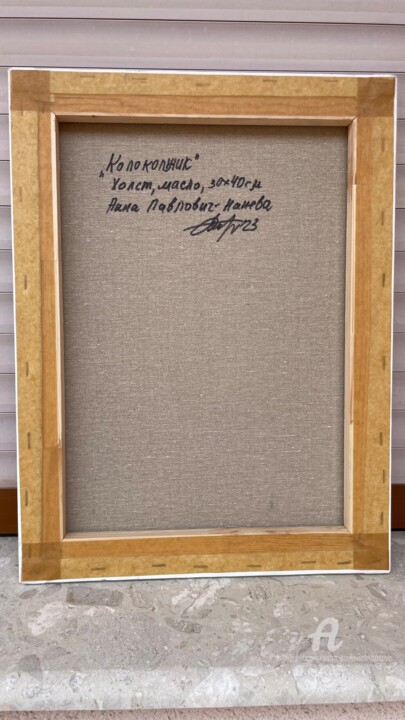 „Колокольчик"
Холст, масло, 30x40см
Анна Павлович-Нанева
23